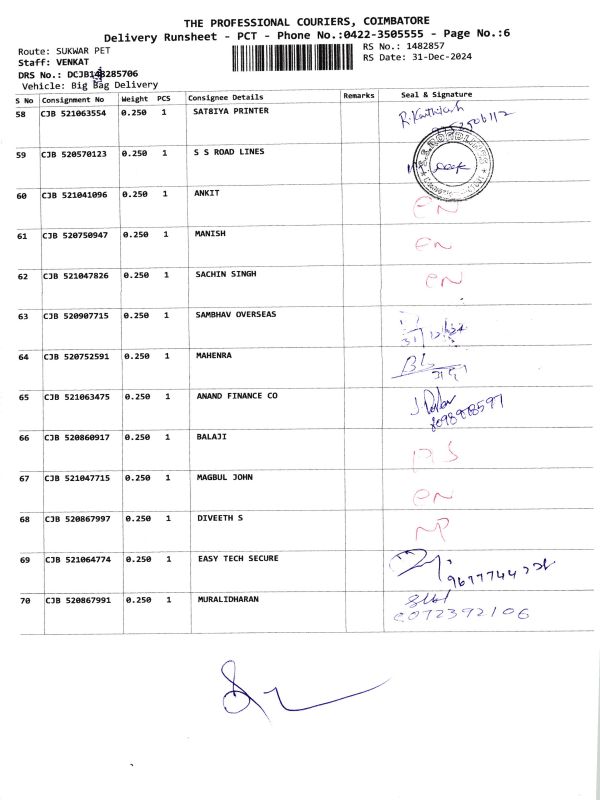 THE PROFESSIONAL COURIERS, COIMBATORE
Delivery Runsheet - PCT - Phone No.:0422-3505555 - Page No.:6
Route: SUKWAR PET RS No.: 1482857
Staff: VENKAT RS Date: 31-Dec-2024
DRS No.: DCJB148285706
Vehicle: Big Bag Delivery
S No Consignment No Weight PCS Consignee Details Remarks Seal & Signature
58 CJB 521063554 0.250 1 SAT8IYA PRINTER
59 CJB 520570123 0.250 1 S S ROAD LINES
60 CJB 521041096 0.250 1 ANKIT EN
61 CJB 520750947 0.250 1 MANISH EN
62 CJB 521047826 0.250 1 SACHIN SINGH EN
63 CJB 520907715 0.250 1 SAMBHAV OVERSEAS
64 CJB 520752591 0.250 1 MAHENRA
65 CJB 521063475 0.250 1 ANAND FINANCE CO
66 CJB 520860917 0.250 1 BALAJI
67 CJB 521047715 0.250 1 MAGBUL JOHN EN
68 CJB 520867997 0.250 1 DIVEETH S NP
69 CJB 521064774 0.250 1 EASY TECH SECURE
70 CJB 520867991 0.250 1 MURALIDHARAN